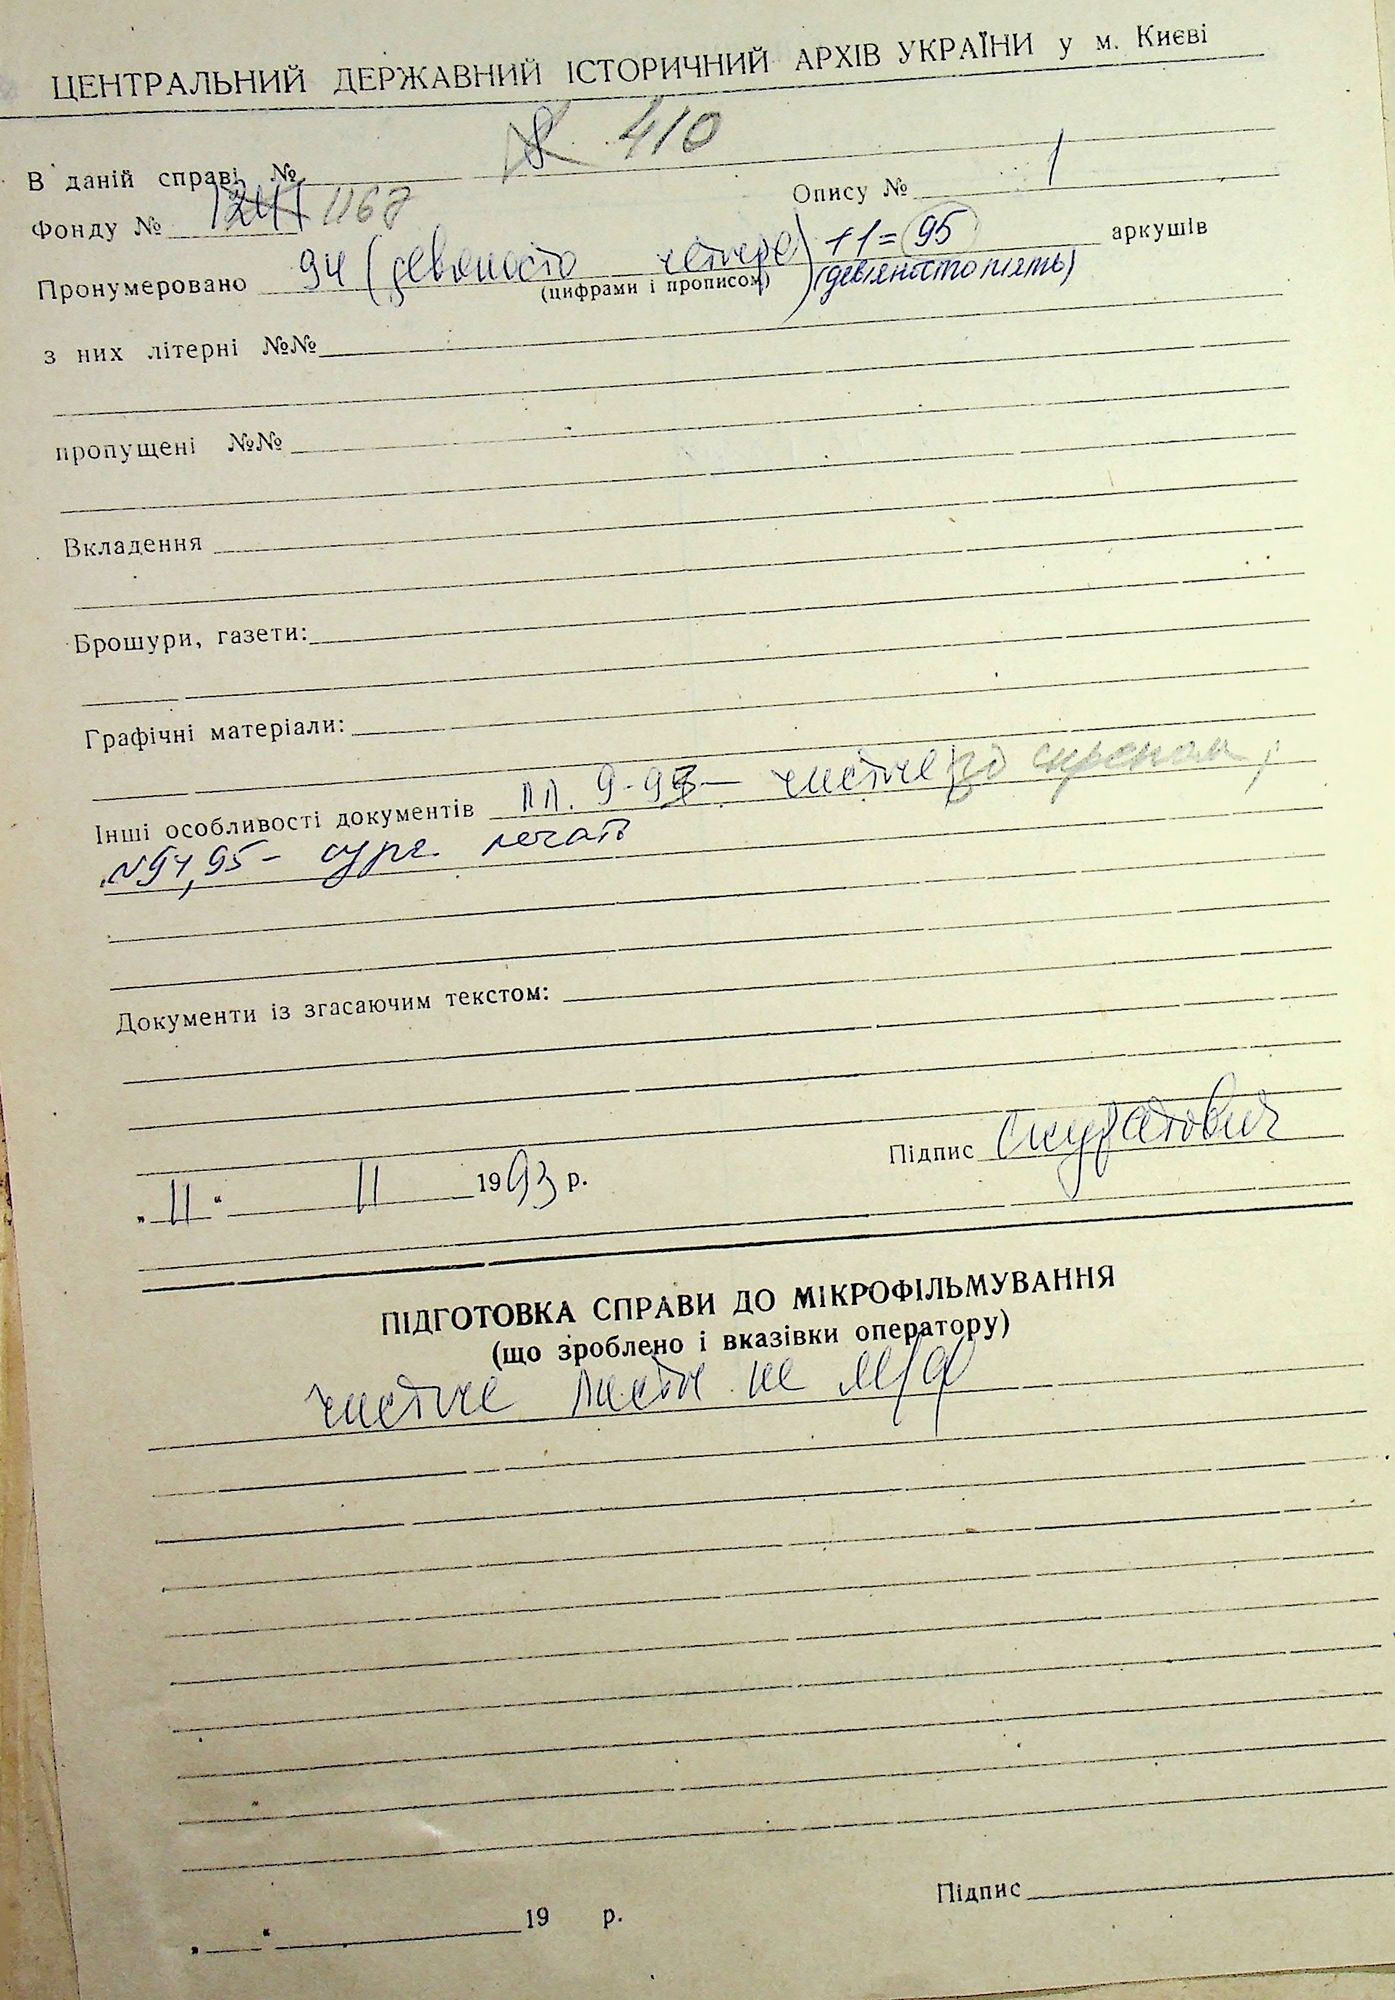 ЦЕНТРАЛЬНИЙ ДЕРЖАВНИЙ ІСТОРИЧНИЙ АРХІВ УКРАЇНИ у м. Києві
В даній справі № 8 410
Опису № 1
Фонду № 1241 1167
Пронумеровано 94 (девяносто четыре) +1=95 аркушів
(цифрами і прописом) (дев'яносто п'ять)
з них літерні №№
пропущені №№
Вкладення
Брошури, газети:
Графічні матеріали:
Інші особливості документів лл. 9-93 - чистые
94, 95 - сург. печать
Документи із згасаючим текстом:
Підпис
„11“ 11 1993 р.
ПІДГОТОВКА СПРАВИ ДО МІКРОФІЛЬМУВАННЯ
(що зроблено і вказівки оператору)
чистые листы не м/ф
Підпис
„ “ 19 р.